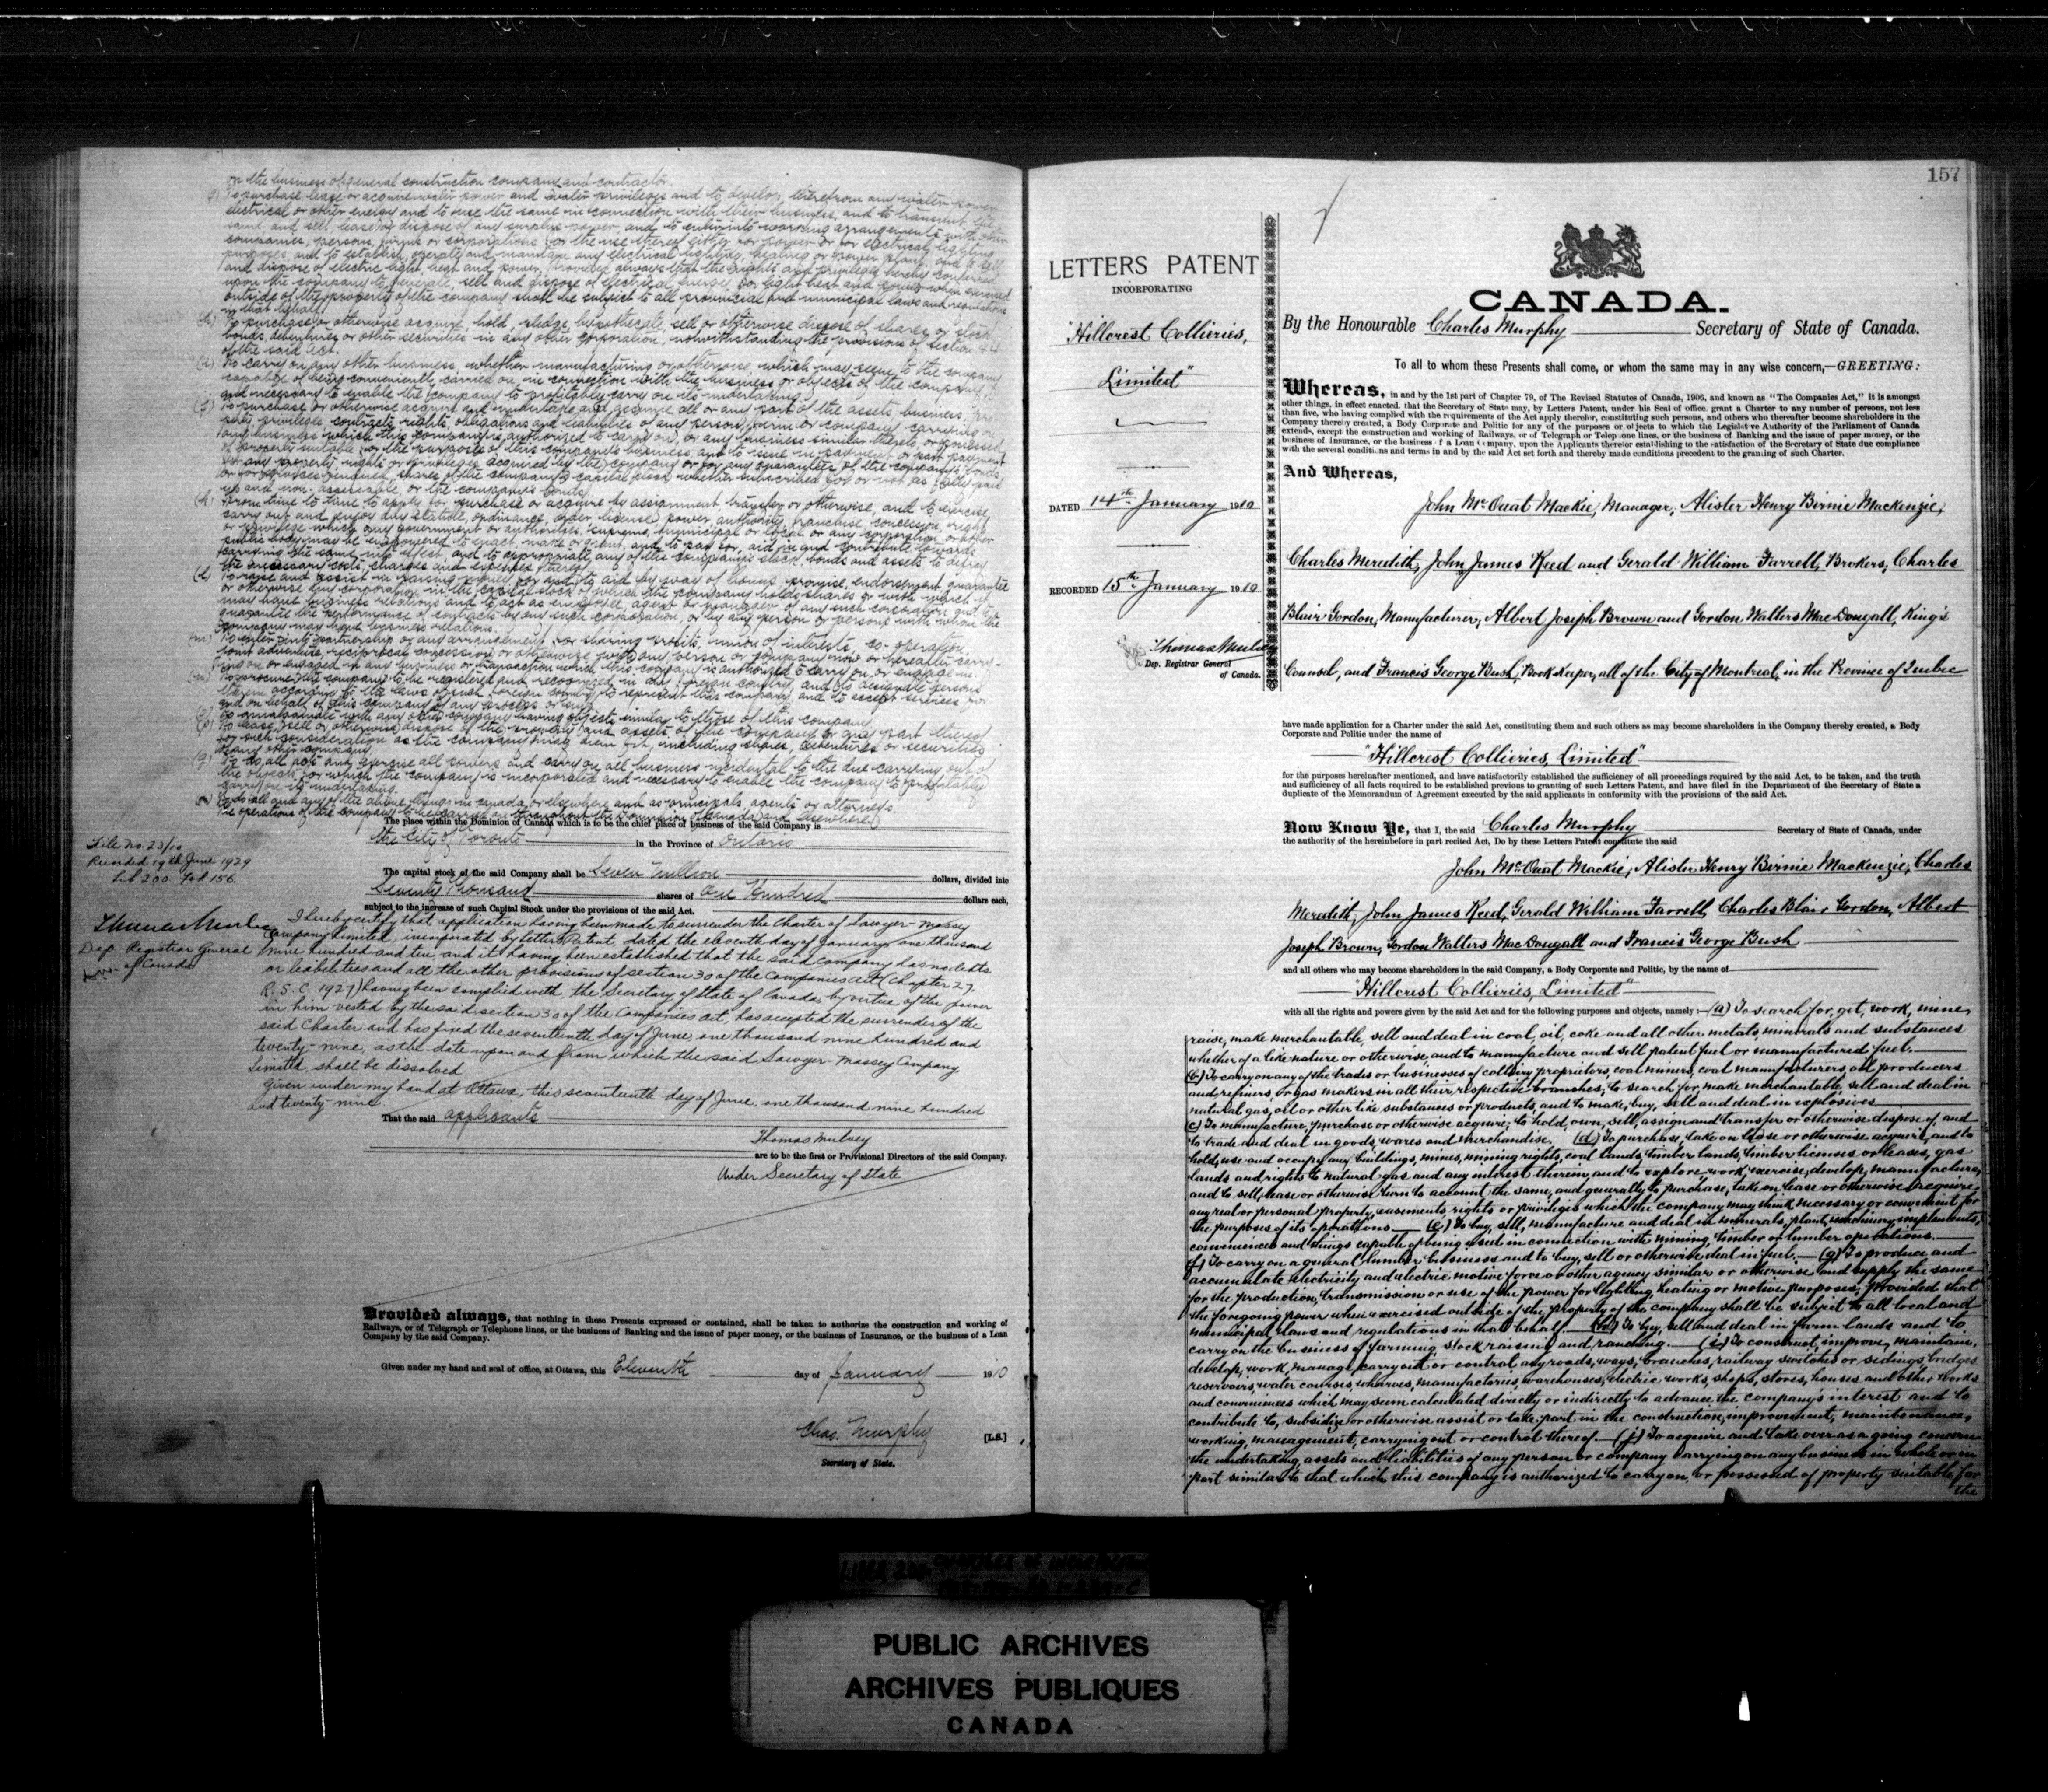 or the business of general construction company and contractor.
(g) To purchase lease or acquire water power and water privileges and to develop therefrom any water power
electrical or other energy and to use the same in connection with their business, and to transmit the
same and sell lease or dispose of any surplus power, and to enter into working arrangements with other
companies, persons, firms or corporations for the use thereof either for power or for electrical lighting
purposes and to establish, operate and maintain any electrical lighting, heating or power plant, and to sell
and dispose of electric light, heat and power, Provided always that the rights and privileges hereby conferred
upon the company to generate, sell and dispose of electrical energy for light heat and power when exercised
outside of the property of the company shall be subject to all provincial and municipal laws and regulations
in that behalf.
(h) To purchase or otherwise acquire, hold, pledge, hypothecate, sell or otherwise dispose of shares or stock
bonds, debentures or other securities in any other corporation, notwithstanding the provisions of section 44
of the said Act.
(i) To carry on any other business, whether manufacturing or otherwise, which may seem to the company
capable of being conveniently carried on in connection with the business or objects of the company
and necessary to enable the company to profitably carry on its undertaking.
(j) To purchase or otherwise acquire and undertake and assume all or any part of the assets, business, pro-
perty, privileges, contracts, rights, obligations and liabilities of any person, firm or company carrying on
any business which this company is authorized to carry on, or any business similar thereto or possessed
of property suitable for the purposes of this company's business and to issue in payment or part payment
for any property rights or privileges acquired by the company or for any guarantees of the company's bonds
or for services rendered, shares of the company's capital stock whether subscribed for or not as fully paid
up and non-assessable, or the company's bonds.
(k) From time to time to apply for purchase or acquire by assignment transfer or otherwise, and to exercise,
carry out and enjoy any statute, ordinance, order, license, power, authority, franchise, concession, right
or privilege which any government or authorities, supreme, municipal or local or any corporation or other
public body may be empowered to enact, make or grant, and to pay for, aid in and contribute towards
carrying the same into effect, and to appropriate any of the company's stock, bonds and assets to defray
the necessary costs, charges and expenses thereof.
(l) To raise and assist in raising money for and to aid by way of bonus, promise, endorsement, guarantee
or otherwise any corporation in the capital stock of which the company holds shares or with which it
may have business relations and to act as employee, agent or manager of any such corporation and to
guarantee the performance of contracts by any such corporation, or by any person or persons with whom the
company may have business relations.
(m) To enter into partnership or any arrangement for sharing profits, union of interests, co-operation,
joint adventure, reciprocal concession or otherwise with any person or company now or hereafter carry-
ing on or engaged in any business or transaction which this company is authorized to carry on or engage in.
(n) To procure the company to be registered and recognized in any foreign country, and to designate persons
therein according to the laws of such foreign country to represent this company and to accept service for
and on behalf of this company of any process or suit.
(o) To amalgamate with any other company having objects similar to those of this company.
(p) To lease, sell or otherwise dispose of the property and assets of the company or any part thereof
for such consideration as the company may deem fit, including shares, debentures or securities
of any other company.
(q) To do all acts and exercise all powers and carry on all business incidental to the due carrying out of
the objects for which the company is incorporated and necessary to enable the company to profitably
carry on its undertaking.
(r) To do all and any of the above things in Canada or elsewhere and as principals, agents or attorneys.
The operations of the Company to be carried on throughout the Dominion of Canada and elsewhere
The place within the Dominion of Canada which is to be the chief place of business of the said Company is
the City of Toronto in the Province of Ontario
The capital stock of the said Company shall be Seven Million dollars, divided into
Seventy Thousand shares of One Hundred dollars each,
subject to the increase of such Capital Stock under the provisions of the said Act.
File No. 23/10
Recorded 19th June 1929
Lib 200 Fol 156
Thomas Mulvey
Dep Registrar General
of Canada
I hereby certify that application having been made to surrender the Charter of Sawyer-Massey
Company Limited, incorporated by Letters Patent, dated the eleventh day of January one thousand
nine hundred and ten, and it having been established that the said company has no debts
or liabilities and all the other provisions of section 30 of the Companies Act (Chapter 27
R.S.C. 1927) having been complied with, the Secretary of State of Canada by virtue of the power
in him vested by the said section 30 of the Companies Act, has accepted the surrender of the
said Charter and has fixed the seventeenth day of June, one thousand nine hundred and
twenty-nine, as the date upon and from which the said Sawyer-Massey Company
Limited, shall be dissolved
Given under my hand at Ottawa, this seventeenth day of June, one thousand nine hundred
and twenty-nine.
That the said applicants
Thomas Mulvey
are to be the first or Provisional Directors of the said Company.
Under Secretary of State
Provided always, that nothing in these Presents expressed or contained, shall be taken to authorize the construction and working of
Railways, or of Telegraph or Telephone lines, or the business of Banking and the issue of paper money, or the business of Insurance, or the business of a Loan
Company by the said Company.
Given under my hand and seal of office, at Ottawa, this Eleventh day of January 1910
Chas. Murphy [L.S.]
Secretary of State.
157
LETTERS PATENT
INCORPORATING
"Hillcrest Collieries,
Limited"
DATED 14th January 1910
RECORDED 15th January 1910
Thomas Mulvey
Dep. Registrar General
of Canada.
CANADA.
By the Honourable Charles Murphy Secretary of State of Canada.
To all to whom these Presents shall come, or whom the same may in any wise concern,—GREETING:
Whereas, in and by the 1st part of Chapter 79, of The Revised Statutes of Canada, 1906, and known as "The Companies Act," it is amongst
other things, in effect enacted, that the Secretary of State may, by Letters Patent, under his Seal of office, grant a Charter to any number of persons, not less
than five, who having complied with the requirements of the Act apply therefor, constituting such persons, and others who thereafter become shareholders in the
Company thereby created, a Body Corporate and Politic for any of the purposes or objects to which the Legislative Authority of the Parliament of Canada
extends, except the construction and working of Railways, or of Telegraph or Telephone lines, or the business of Banking and the issue of paper money, or the
business of Insurance, or the business of a Loan Company, upon the Applicants therefor establishing to the satisfaction of the Secretary of State due compliance
with the several conditions and terms in and by the said Act set forth and thereby made conditions precedent to the granting of such Charter.
And Whereas,
John McOuat Mackie, Manager, Alister Henry Birnie Mackenzie,
Charles Meredith, John James Reed and Gerald William Farrell, Brokers, Charles
Blair Gordon, Manufacturer, Albert Joseph Brown and Gordon Walters MacDougall, King's
Counsel, and Francis George Bush, Book Keeper, all of the City of Montreal, in the Province of Quebec
have made application for a Charter under the said Act, constituting them and such others as may become shareholders in the Company thereby created, a Body
Corporate and Politic under the name of
"Hillcrest Collieries, Limited"
for the purposes hereinafter mentioned, and have satisfactorily established the sufficiency of all proceedings required by the said Act, to be taken, and the truth
and sufficiency of all facts required to be established previous to granting of such Letters Patent, and have filed in the Department of the Secretary of State a
duplicate of the Memorandum of Agreement executed by the said applicants in conformity with the provisions of the said Act.
Now Know Ye, that I, the said Charles Murphy Secretary of State of Canada, under
the authority of the hereinbefore in part recited Act, Do by these Letters Patent constitute the said
John McOuat Mackie, Alister Henry Birnie Mackenzie, Charles
Meredith, John James Reed, Gerald William Farrell, Charles Blair Gordon, Albert
Joseph Brown, Gordon Walters MacDougall and Francis George Bush
and all others who may become shareholders in the said Company, a Body Corporate and Politic, by the name of
"Hillcrest Collieries, Limited"
with all the rights and powers given by the said Act and for the following purposes and objects, namely:— (a) To search for, get, work, mine,
raise, make merchantable, sell and deal in coal, oil, coke and all other metals, minerals and substances
whether of a like nature or otherwise, and to manufacture and sell patent fuel or manufactured fuel.
(b) To carry on any of the trades or businesses of colliery proprietors, coal miners, coal manufacturers, oil producers
and refiners, or gas makers in all their respective branches; to search for, make merchantable, sell and deal in
natural gas, oil or other like substances or products, and to make, buy, sell and deal in explosives
(c) To manufacture, purchase or otherwise acquire; to hold, own, sell, assign and transfer or otherwise dispose of, and
to trade and deal in goods, wares and merchandise. (d) To purchase, take on lease or otherwise acquire, and to
hold, use and occupy any buildings, mines, mining rights, coal lands, timber lands, timber licenses or leases, gas
lands and rights to natural gas and any interest therein, and to explore, work, exercise, develop, manufacture,
and to sell, lease or otherwise turn to account the same, and generally to purchase, take on lease or otherwise acquire,
any real or personal property, easements rights or privileges which the company may think necessary or convenient for
the purposes of its operations (e) To buy, sell, manufacture and deal in minerals, plant, machinery, implements,
conveniences and things capable of being used in connection with mining, timber or lumber operations.
(f) To carry on a general lumber business and to buy, sell or otherwise deal in fuel. (g) To produce and
accumulate electricity and electric motive force or other agency similar or otherwise and supply the same
for the production, transmission or use of the power for lighting, heating or motive purposes; provided that
the foregoing power when exercised outside of the property of the company shall be subject to all local and
municipal laws and regulations in that behalf. (h) To buy, sell and deal in farm lands and to
carry on the business of farming, stock raising and ranching. (i) To construct, improve, maintain,
develop, work, manage, carry out or control any roads, ways, branches, railway switches or sidings, bridges
reservoirs, water courses, wharves, manufactories, warehouses, electric works, shops, stores, houses and other works
and conveniences which may seem calculated directly or indirectly to advance the company's interest and to
contribute to, subsidize or otherwise assist or take part in the construction, improvement, maintenance,
working, management, carrying out or control thereof. (j) To acquire and take over as a going concern
the undertaking, assets and liabilities of any person or company carrying on any business in whole or in
part similar to that which this company is authorized to carry on, or possessed of property suitable for
the
PUBLIC ARCHIVES
ARCHIVES PUBLIQUES
CANADA